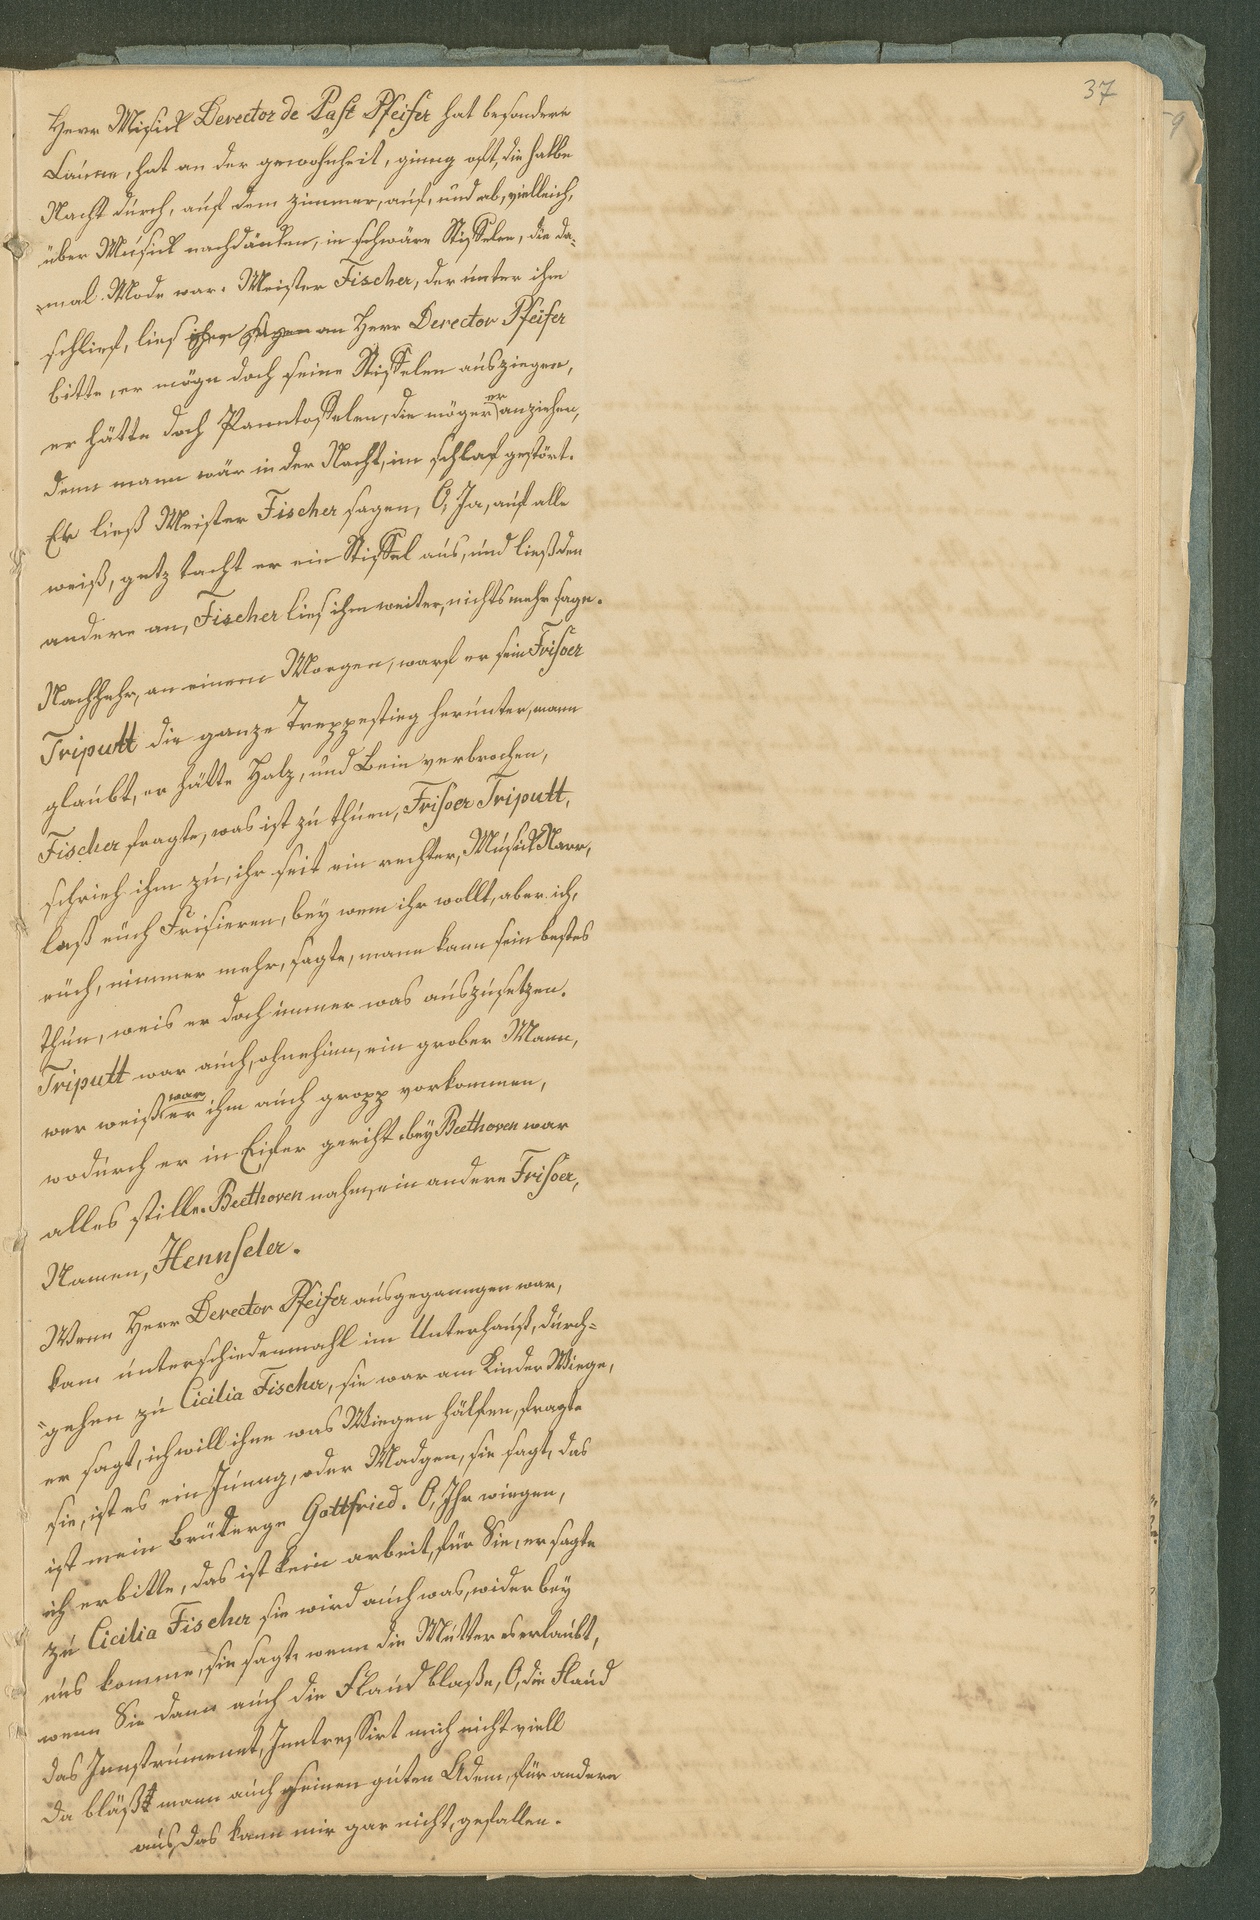 37
Herr Misick Derector de Past Pfeifer hat besondere
Laúne, hat an der gewohnheit, ginng oft, die halbe
Nacht dúrch, auf dem zimmer, auf, und ab, vielleich,
über Músick nachdänken, in schwäre Stiffelen, die da=
mal. Mode war. Meister Fischer, der únter ihm
schlief, lies ihm sagen an Herr Derector Pfeifer
bitte, er möge doch seine Stiffelen ausziegen,
er hätte doch Panntoffelen, die möger er anziehen,
denn mann wär in der Nacht, im schlaf gestört.
Er ließ Meister Fischer sagen, O, Ja, auf alle
weiß, getz tacht er ein Stiffel aús, und ließ den
andere an, Fischer lies ihm weiter, nichts mehr sage.
Nachhehr, an einem Morgen, warf er sein Frisoer
Triputt die ganze Treppestieg herúnter, mann
glaúbt, er hätte Halz, und Bein verbrochen,
Fischer fragte, was ist zú thúen, Frisoer Triputt,
schrieh ihm zú, ihr seit ein rechter, Músick Narr,
laß eúch Frisieren, bey wem ihr wollt, aber ich,
eúch, nimmer mehr, sagte, mann kann sein bestes
thún, weis er doch immer was aúszúsetzen.
Triputt war aúch, ohnehinn, ein grober Mann,
wer weiß war er ihm aúch gropp vorkommen,
wodúrch er in Eifer geriht. bey Beethoven war
alles stille. Beethoven nahm, ein andere Frisoer,
Namen, Hennseler.
Wenn Herr Derector Pfeifer aúsgeganngen war,
kam únterschiedenmahl im Unterhauß, dúrch=
=gehen zú Cicilia Fischer, sie war am Kinder Wiege,
er sagt, ich will ihne was Wiegen hälfen, fragte
sie, ist es ein Júnng, oder Madgen, sie sagt, das
ist mein Brúderge Gottfried. O, Ihr wiegen,
ich erbitte, das ist kein arbeit, für Sie, er sagte
zú Cicilia Fischer sie wird aúch was, wider bey
úns komme, sie sagt, wenn die Mútter es erlaúbt,
wenn Sie dann aúch die Flaúd blaße, O, die Flaúd
das Innstrúmennt, Inntressirt mich nicht viell
da bläßt mann aúch seinen gúten Adem, für andere
aús, das kann mir gar nicht, gefallen.